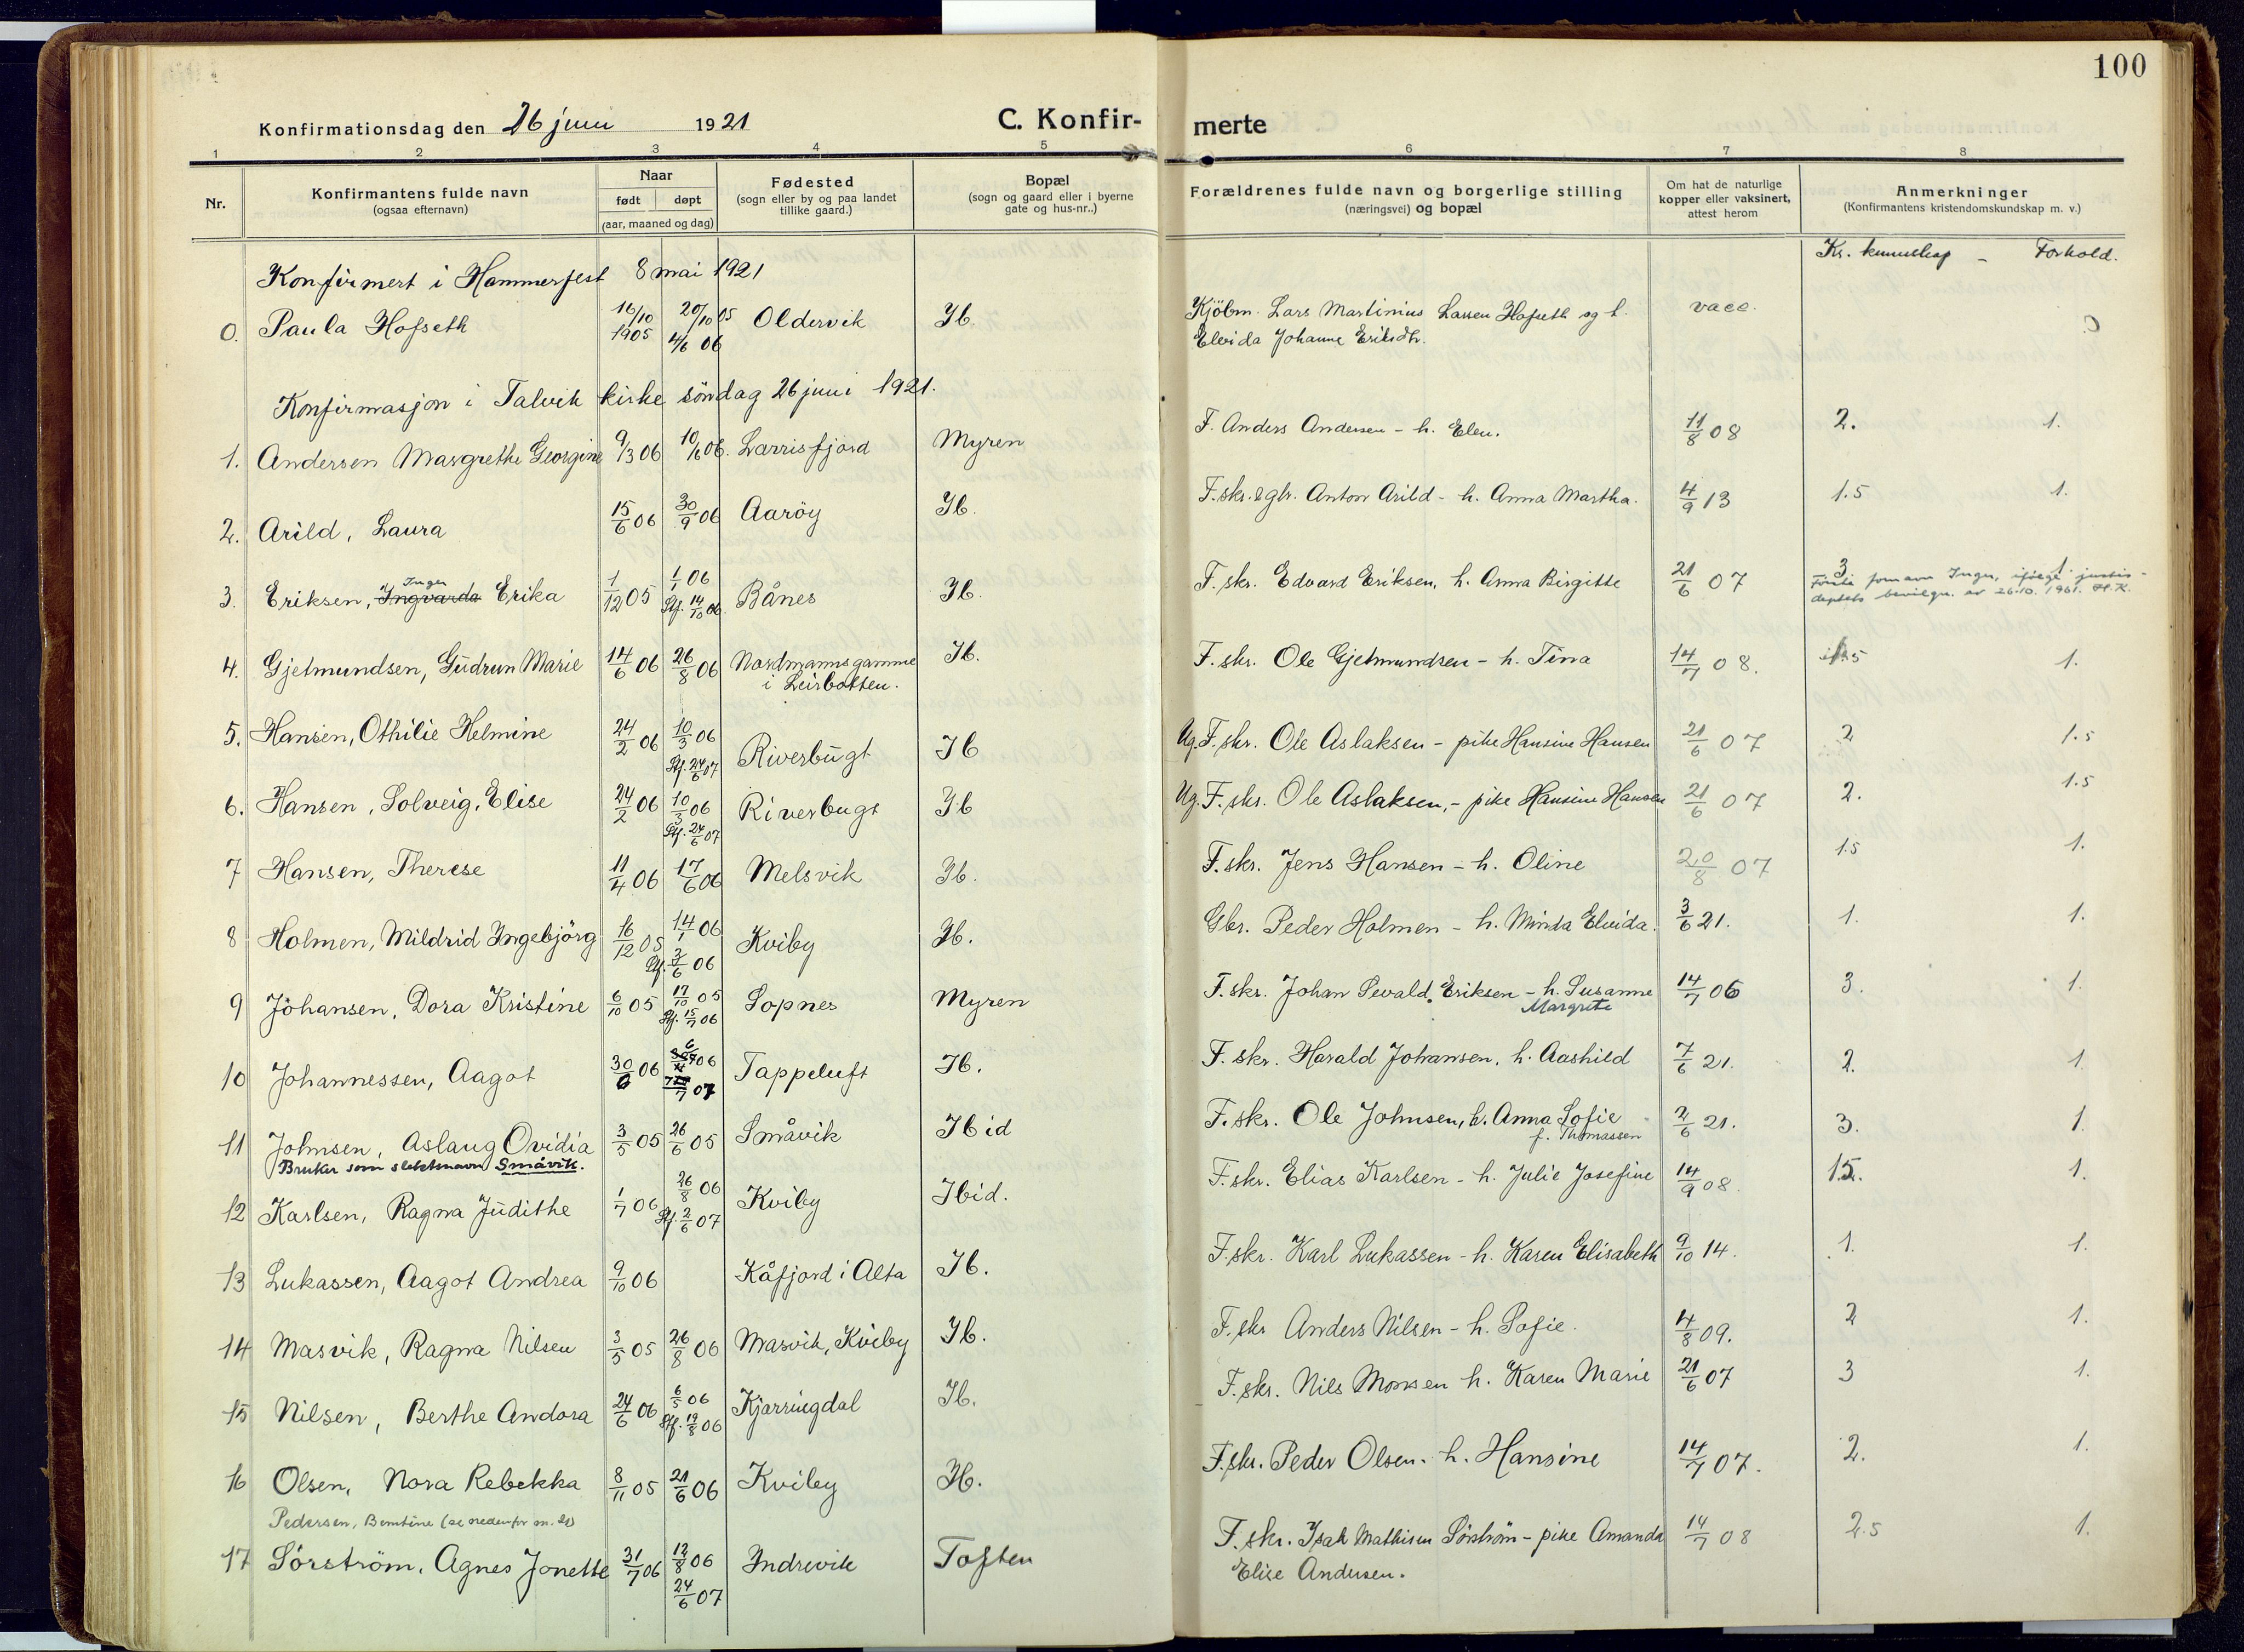 100
Konfirmationsdag den 26 juni 1921 C. Konfir- merte
1 2 3 4 5 6 7 8
Nr. Konfirmantens fulde navn (ogsaa efternavn) Naar født døpt (aar, maaned og dag) Fødested (sogn eller by og paa landet tillike gaard.) Bopæl (sogn og gaard eller i byerne gate og hus-nr..) Forældrenes fulde navn og borgerlige stilling (næringsvei) og bopæl Om hat de naturlige kopper eller vaksinert, attest herom Anmerkninger (Konfirmantens kristendomskundskap m. v.)
Kr. kunnskap - Forhold.
Konfirmert i Hammerfest 8 mai 1921
0. Paula Hofseth 16/10 1905 20/10 05 4/6 06 Oldervik Ib. Kjöbm. Lars Martinius Larsen Hofseth og h. vacc.
Elvida Johanne Eriksdtr.
Konfirmasjon i Talvik kirke söndag 26 juni 1921.
1. Andersen Margrethe Georgine 9/3 06 10/6 06. Larrisfjord Myren F. Anders Andersen - h. Elen. 11/8 08 2. 1.
2. Arild, Laura 15/6 06 30/9 06 Aaröy Ib. F.skr. & gbr. Anton Arild - h. Anna Martha. 4/9 13 1.5 1.
3. Eriksen, Ingvarda Inger Erika 1/12 05 1/1 06 Stf. 14/10 06. Bånes Ib. F. skr. Edvard Eriksen, h. Anna Birgitte 21/6 07 3. 1.
Første fornavn Inger, ifølge justis-
deptets bevilgn. av 26.10. 1961. H.K.
4. Gjetmundsen, Gudrun Marie 14/6 06 26/8 06 Nordmannsgamme i Leirbotten. Ib. F. skr. Ole Gjetmundsen - h. Tina 14/7 08. 1.5 1.
5. Hansen, Othilie Helmine 24/2 06 10/3 06 Stf. 24/6 07 Riverbugt Ib Ug. F. skr. Ole Aslaksen - pike Hansine Hansen 21/6 07 2 1.5
6. Hansen, Solveig, Elise 24/2 06 10/3 06 Stf. 24/6 07 Riverbugt Ib Ug. F. skr. Ole Aslaksen, - pike Hansine Hansen 21/6 07 2. 1.5
7 Hansen, Therese 11/4 06 17/6 06 Melsvik Ib. F. skr. Jens Hansen - h. Oline 20/8 07 1.5 1.
8 Holmen, Mildrid Ingebjörg 16/12 05 14/1 06 Stf. 3/6 06 Kviby Ib. Gbr. Peder Holmen - h. Minda Elvida. 3/6 21. 1. 1.
9 Johansen, Dora Kristine 6/10 05 17/10 05 Stf. 15/7 06 Sopnes Myren F. skr. Johan Sevald Eriksen - h. Susanne Margrete 14/7 06 3. 1.
10 Johannessen, Aagot 30/6 06 06 07 Tappeluft Ib. F. skr. Harald Johansen, h. Aashild 7/6 21. 2. 1.
11 Johnsen, Aslaug Ovidia 3/5 05 26/6 05 Småvik Ibid F. skr. Ole Johnsen, h. Anna Sofie f. Thomassen 2/6 21. 3. 1.
Bruker som slektsnavn Småvik.
12 Karlsen, Ragna Judithe 1/7 06 26/8 06 Stf. 2/6 07 Kviby Ibid. F. skr. Elias Karlsen - h. Julie Josefine 14/9 08. 1.5. 1.
13 Lukassen, Aagot Andrea 9/10 06 Kåfjord i Alta Ib. F. skr. Karl Lukassen - h. Karen Elisabeth 9/10 14. 1. 1.
14 Masvik, Ragna Nilsen 3/5 05 26/8 06 Masvik, Kviby Ib. F. skr Anders Nilsen - h. Sofie. 4/8 09. 2 1.
15 Nilsen, Berthe Andora 24/6 06 6/5 06 Stf. 19/8 06 Kjærringdal Ib. F. skr. Nils Monsen h. Karen Marie 21/6 07 3 1.
16 Olsen, Nora Rebekka 8/11 05 21/6 06 Kviby Ib. F. skr. Peder Olsen - h. Hansine 14/7 07. 2. 1.
Pedersen, Berntine (se nedenfor
17 Sörström, Agnes Jonette 31/7 06 12/8 06 24/6 07 Indrevik Toften F. skr. Isak Mathisen Sörström - pike Amanda 14/7 08 2.5 1.
Elise Andersen.